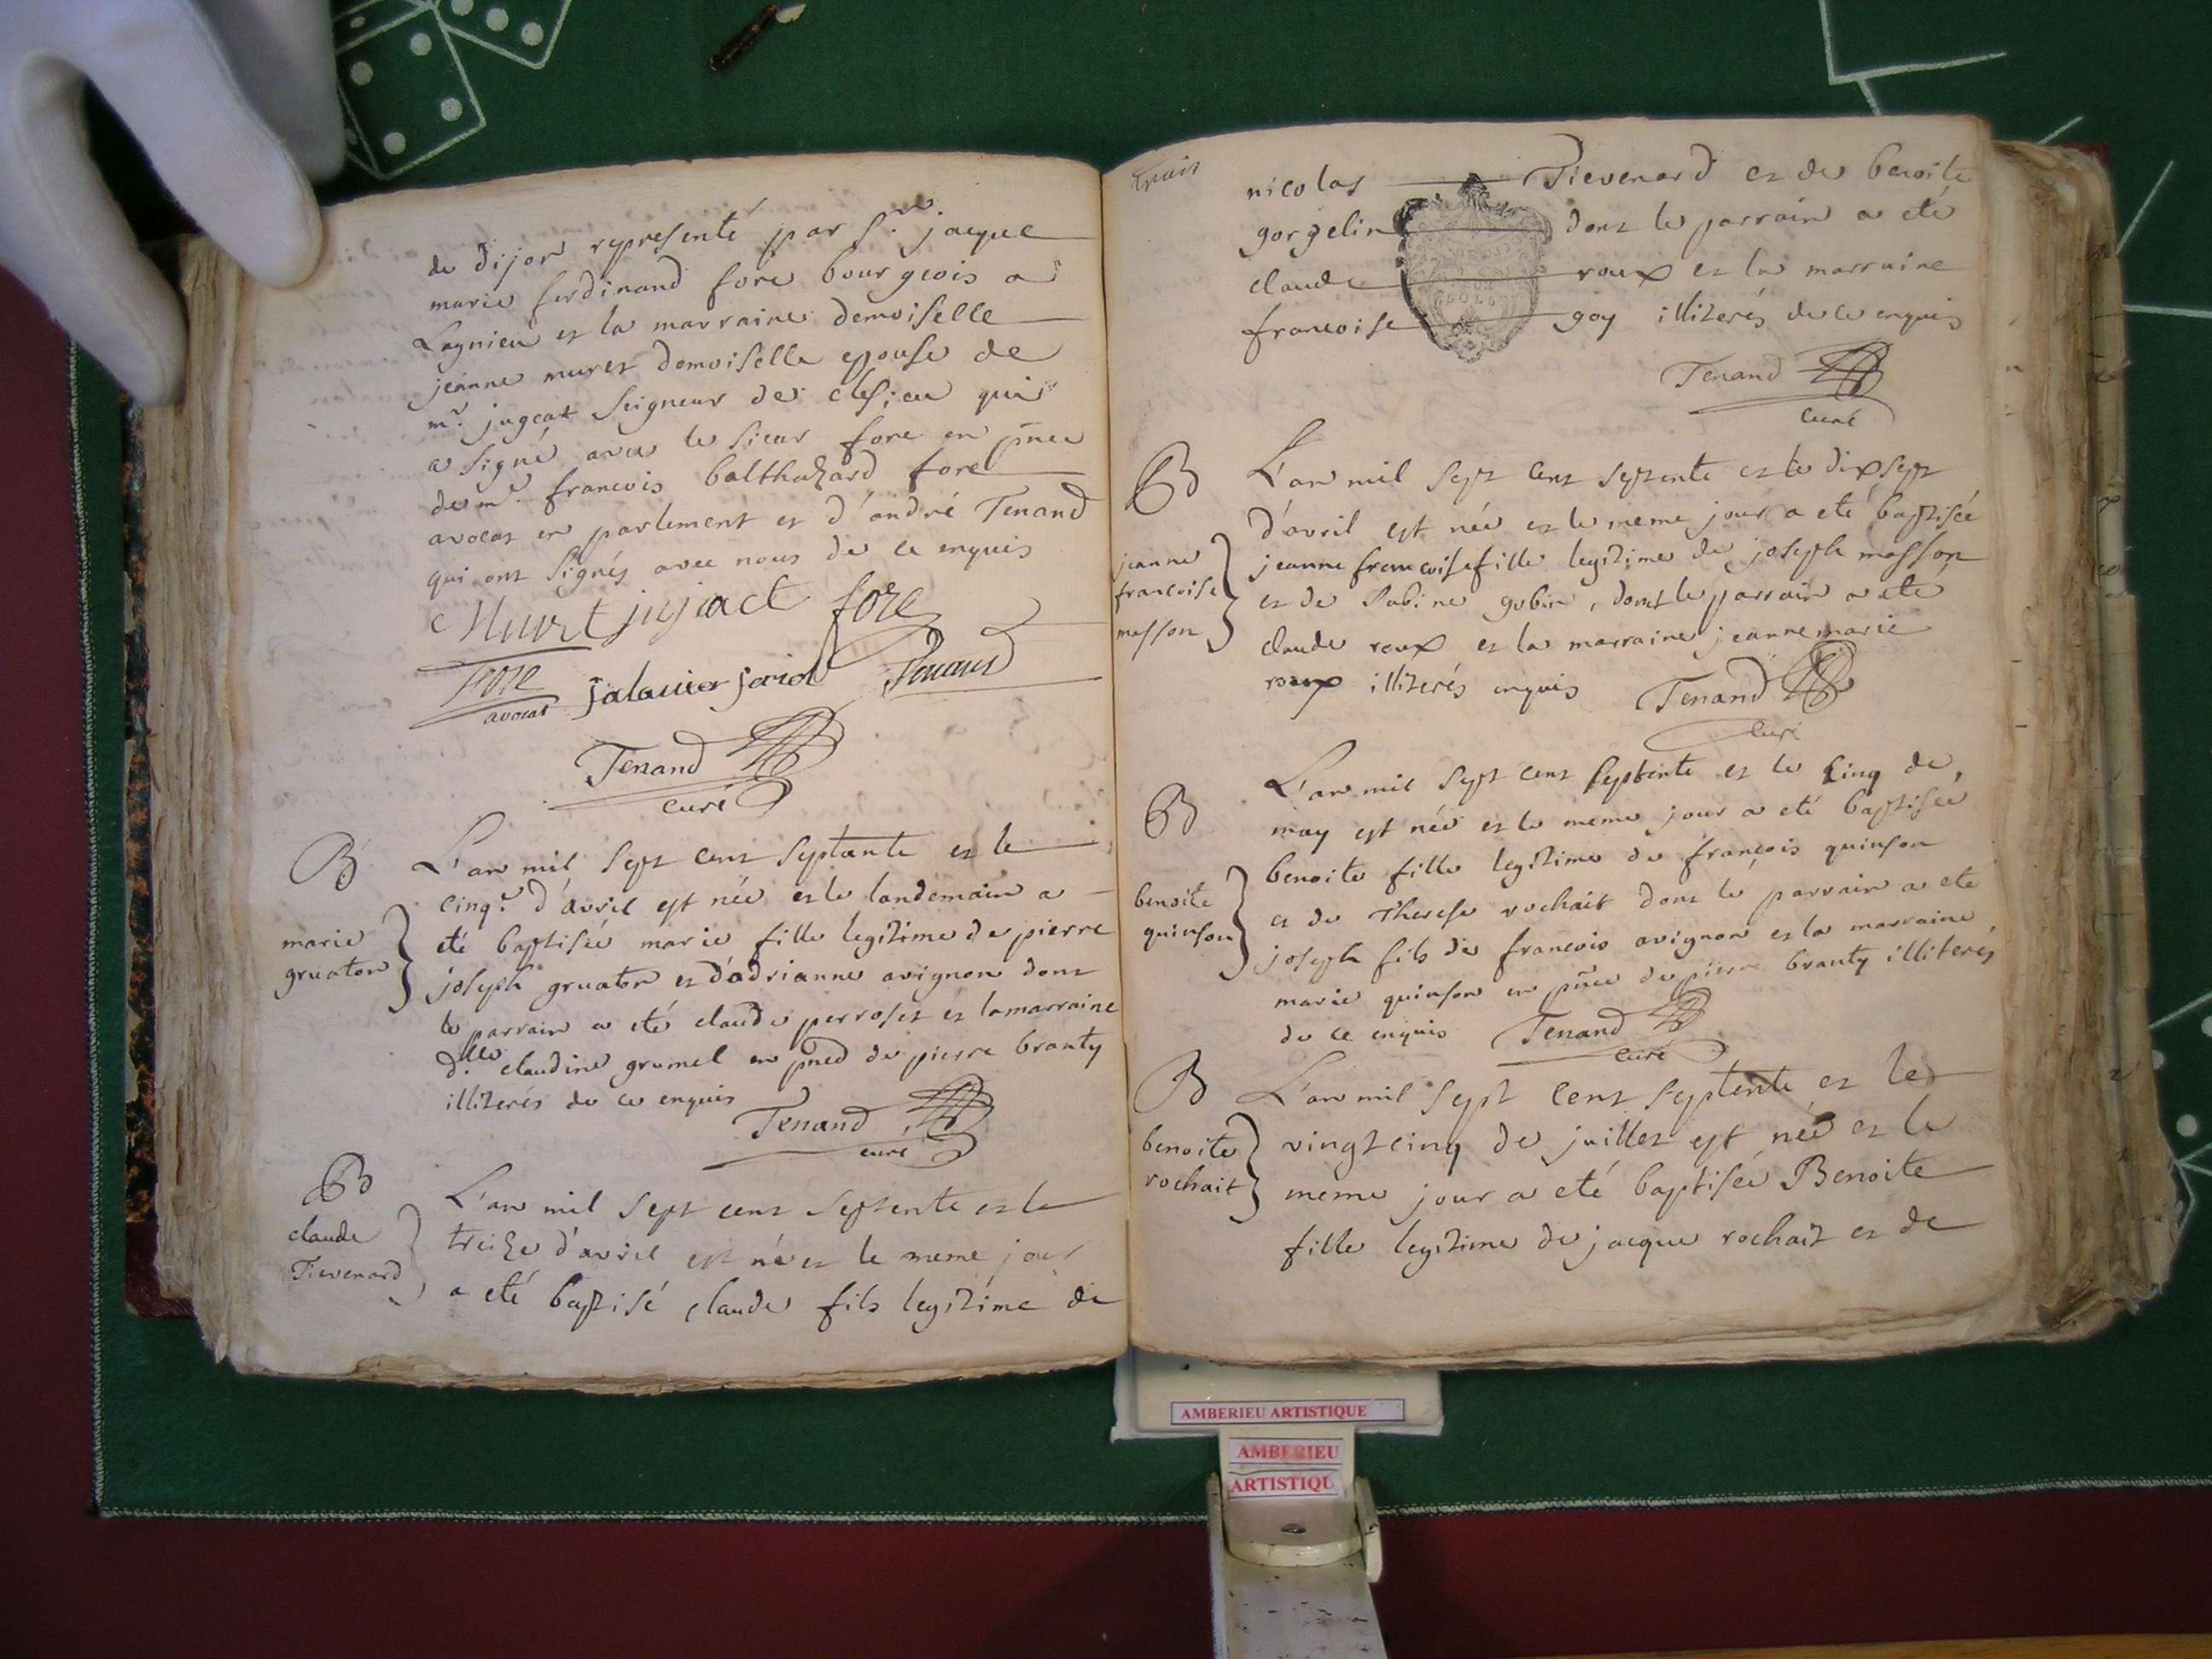 de dijon representé par Sr. jacque
marie ferdinand fore bourgeois a
Lagnieu et la marraine demoiselle
jeanne muret demoiselle epouse de
mr. jugeat Seigneur de qui
a Signé avec le Sieur fore en pnce
de mr. francois balthazard forel
avocat en parlement et d'andré Tenand
qui ont Signés avec nous de ce enquis
Muret jujact fore
fore avocat Tenand
Tenand
curé
B
L'an mil Sept cent Septante et le
cinq. d'avril est née et le landemain a
marie
gruaton
eté baptisée marie fille legitime de pierre
joseph gruaton et d'adrianne avignon dont
le parrain a eté claude perroset et la marraine
dlle claudine gromel en pnce de pierre branty
illiterés de ce enquis
Tenand
curé
B
claude
Tievenard
L'an mil Sept cent Septente et le
treize d'avril est né et le meme jour
a eté baptisé claude fils legitime de
nicolas Tievenard et de benoite
gorgelin dont le parrain a eté
claude roux et la marraine
francoise goy illiterés de ce enquis
Tenand
curé
B
jeanne
francoise
masson
L'an mil Sept Cent Septente et le dix Sept
d'avril est née et le meme jour a eté baptisée
jeanne francoise fille legitime de joseph masson
et de Sabine gobin, dont le parrain a eté
claude roux et la marraine jeanne marie
roux illiterés enquis
Tenand
curé
B
benoite
quinson
L'an mil Sept cent Septente et le cinq de
may est née et le meme jour a eté baptisée
benoite fille legitime de françois quinson
et de Therese rochait dont le parrain a eté
joseph fils de francois avignon et la marraine
marie quinson en pnce de pierre branty illiterés
de ce enquis
Tenand
curé
B
benoite
rochait
L'an mil Sept Cent Septente et le
vingt cinq de juillet est née et le
meme jour a eté baptisée Benoite
fille legitime de jacque rochait et de
AMBERIEU ARTISTIQUE
AMBERIEU
ARTISTIQU